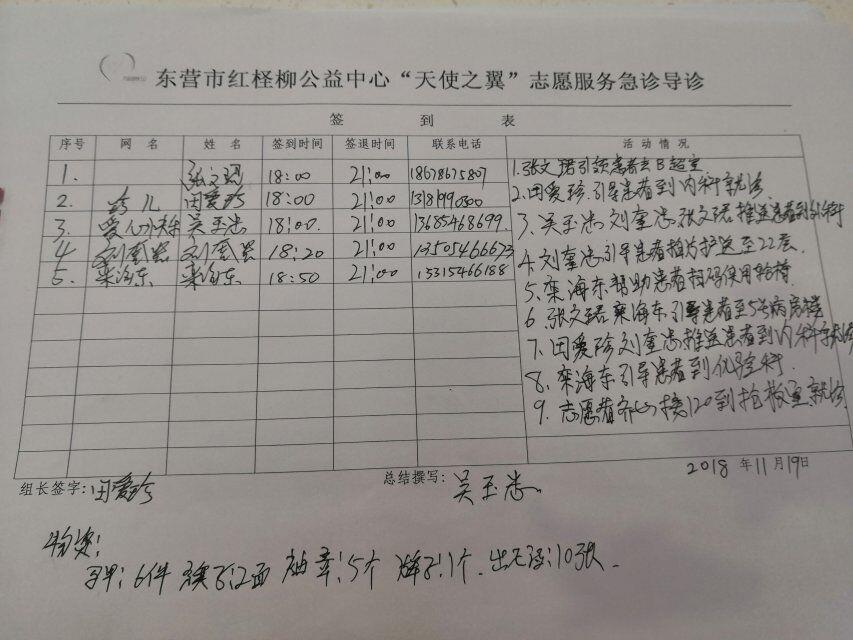 东营市红柽柳公益中心“天使之翼”志愿服务急诊导诊
签 到 表
序号 网 名 姓 名 签到时间 签退时间 联系电话 活 动 情 况
1. 张文珺 18:00 21:00 18678675807
2. 田爱珍 18:00 21:00
3. 吴玉忠 18:00. 21:00 13685468699.
4 刘奎忠 刘奎忠 18:20 21:00 13505466673
5. 栾海东 栾海东 18:50 21:00 15315466188
1.张文珺引领患者去B超室
2.田爱珍.引导患者到内科就诊
3.吴玉忠刘奎忠张文珺推送患者到外科
4.刘奎忠引导患者拍片护送至22层.
5.栾海东帮助患者扫码使用轮椅
6.张文珺栾海东引导患者至5号病房楼
7.田爱珍刘奎忠推送患者到内科就诊
8.栾海东引导患者到化验科.
9.志愿者齐心接120到抢救室就诊
2018 年 11 月 19日
组长签字: 田爱珍 总结撰写: 吴玉忠
物资:
马甲:6件 旗子:2面 袖章:5个 :1个. :10张.